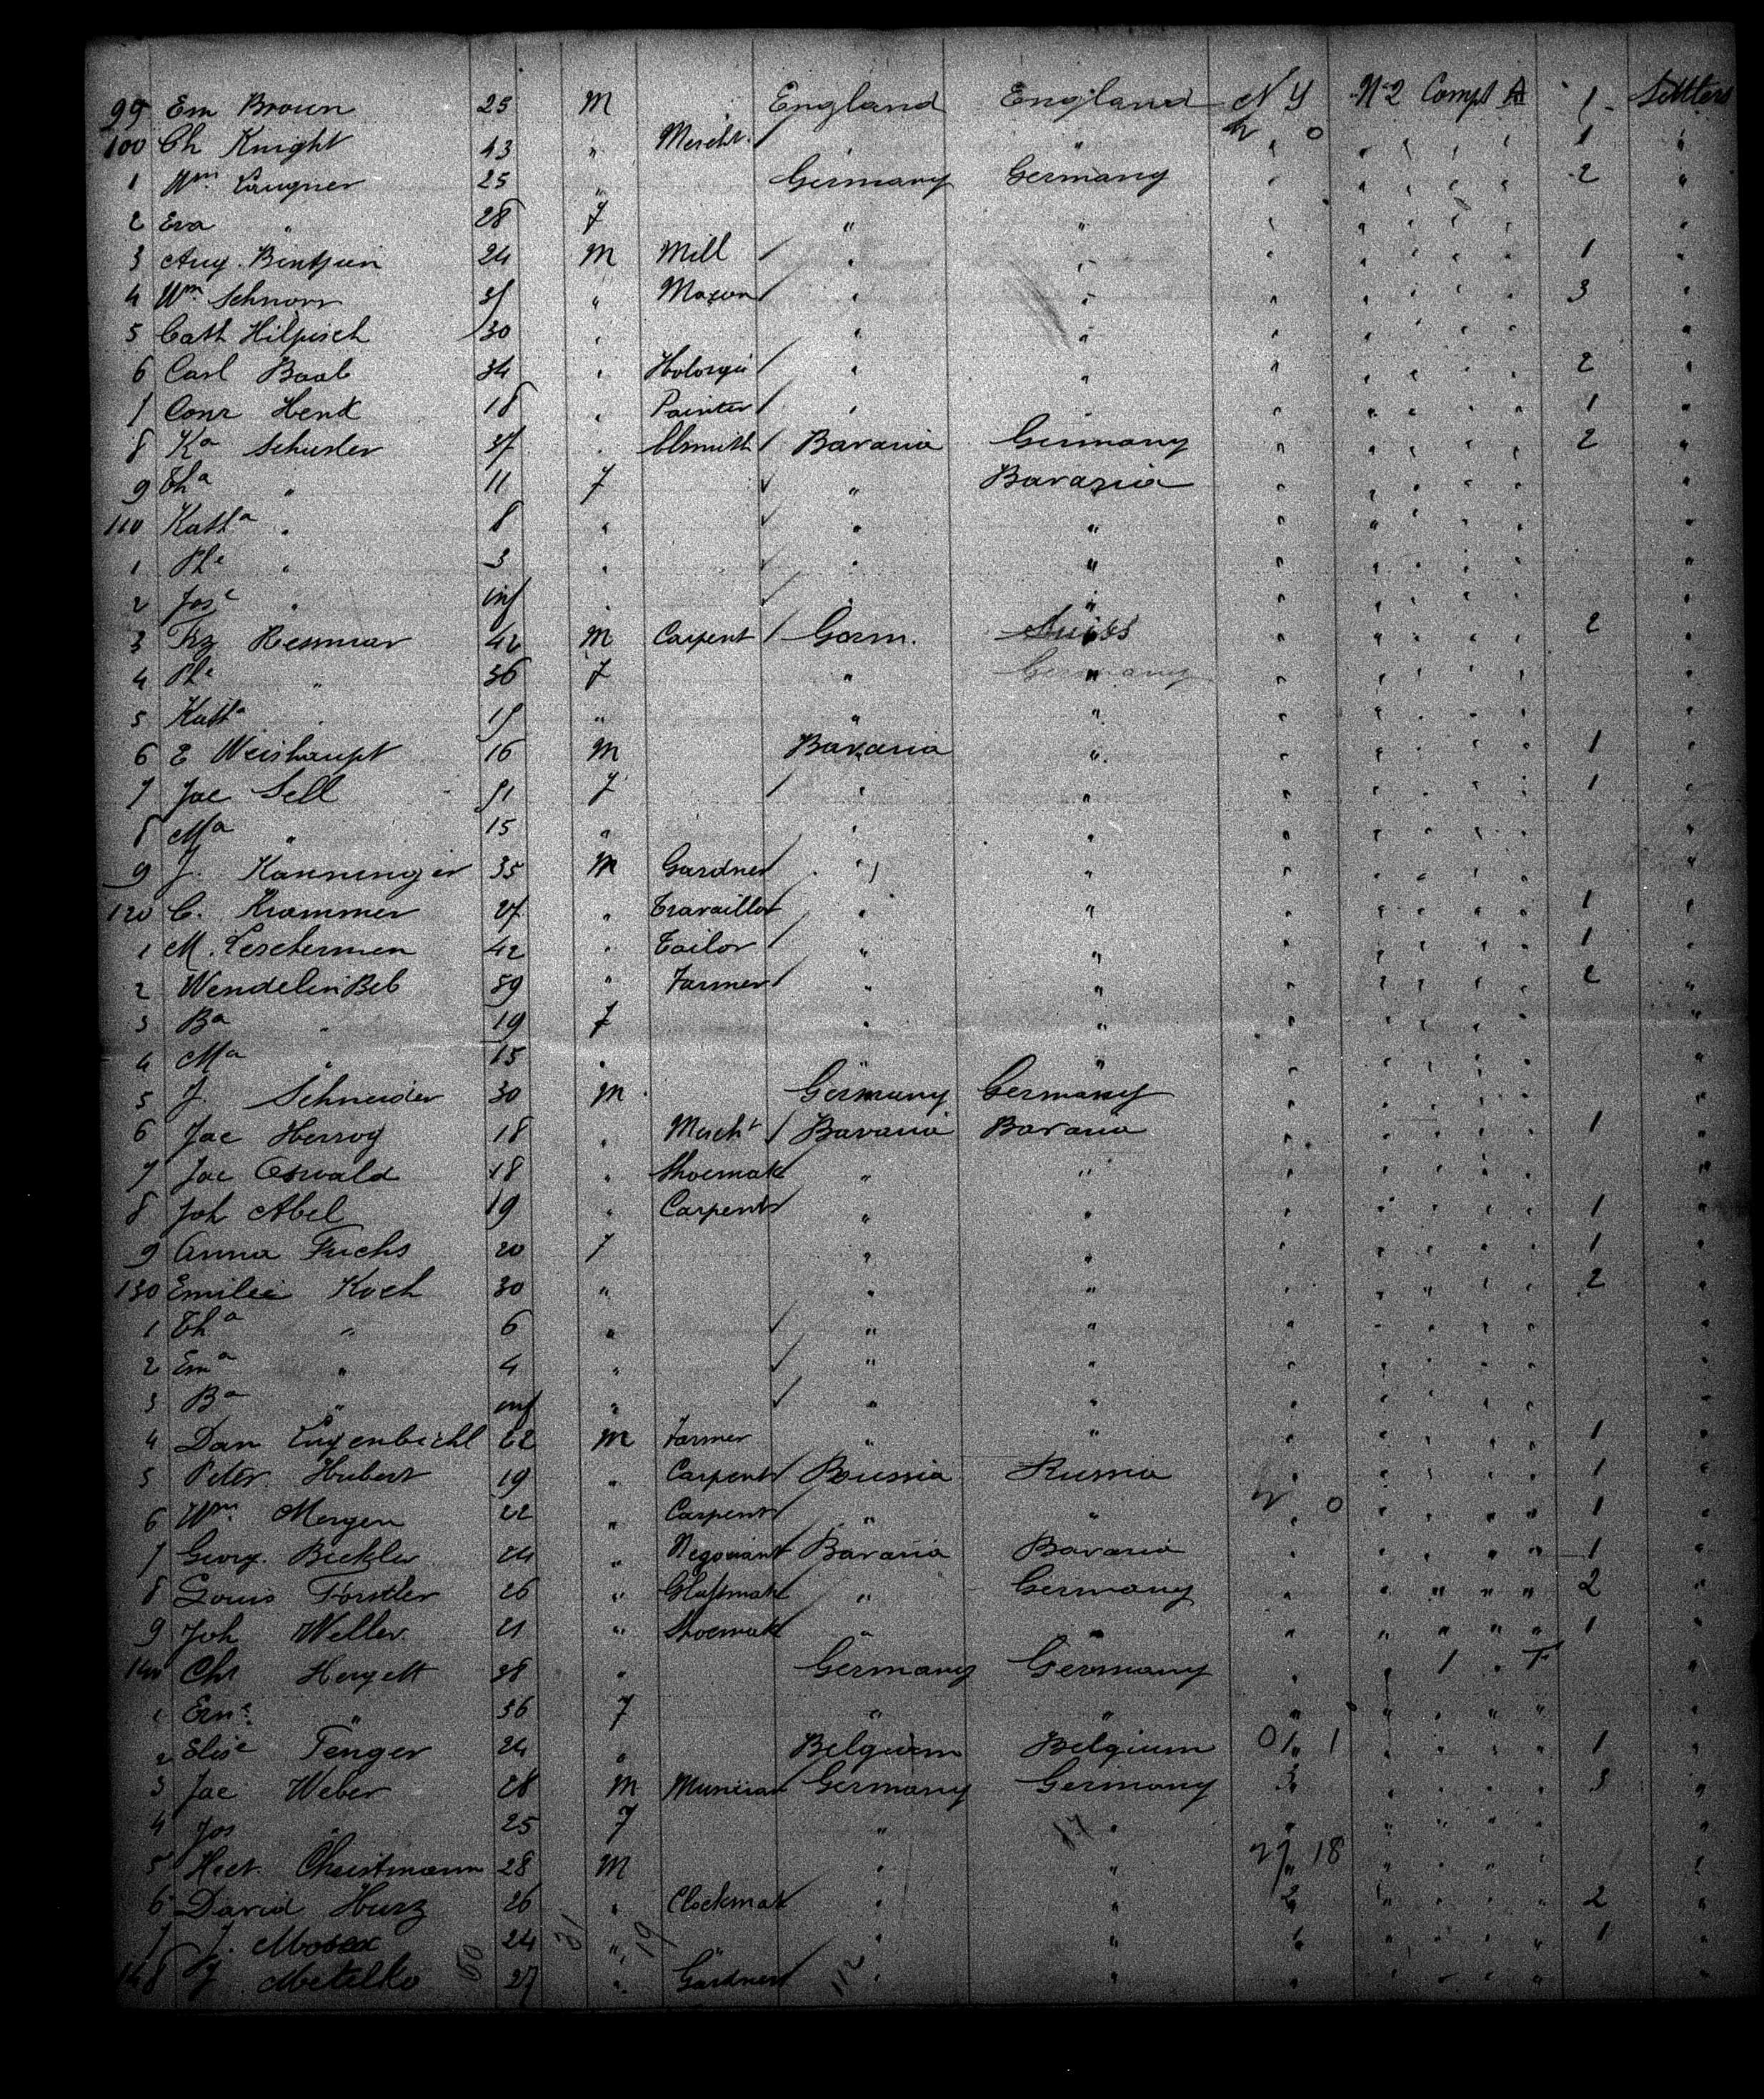 99 Em Brown 25 M England England N Y N 2 Compt A 1 Settlers
100 Ch Knight 43 " Mercht. " " " " " " " 1 "
1 Wm Laugner 25 " Germany Germany " " " " " 2 "
2 Eva " 28 F " " " " " " " "
3 Aug. 24 M Mill " " " " " " " 1 "
4 Wm Schnorr " Mason " " " " " " " 3 "
5 Cath Hilpisch 30 " " " " " " " " "
6 Carl Baab 34 " " " " " " " " 2 "
7 Conr Henk 18 " Painter " " " " " " " 1 "
8 Ka Schuster 37 " Blsmith Bavaria Germany " " " " " 2 "
9 Tha " 11 F " Bavaria " " " " " "
110 Katha " 8 " " " " " " " " "
1 Phe " 3 " " " " " " " " "
2 Jose " inf " " " " " " " " "
3 Frz Resmar 42 M Carpent Germ. Suiss " " " " " 2 "
4 Phe " 36 F " Germany " " " " " " "
5 Katha " " " " " " " " " "
6 E Weishaupt 16 M Bavaria " " " " " " 1 "
7 Jac Sell 51 F " " " " " " " 1 "
8 Ma " 15 " " " " " " " " "
9 J. Kanninger 35 M Gardner " " " " " " " "
120 C. Krammer 27 " Travaillor " " " " " " " 1 "
1 M. Leschermen 42 " Tailor " " " " " " " 1 "
2 Wendelin Beb 59 " Farmer " " " " " " " 2 "
3 Ba " 19 F " " " " " " " "
4 Ma " 15 " " " " " " " " "
5 J. Schneider 30 M Germany Germany " " " " " "
6 Jac Herzog 18 " Mercht Bavaria Bavaria " " " " " 1 "
7 Jac Oswald 18 " Shoemak " " " " " " " "
8 Joh Abel 19 " Carpent " " " " " " " 1 "
9 Anna Fuchs 20 F " " " " " " " 1 "
130 Emilie Koch 30 " " " " " " " " 2 "
1 Tha " 6 " " " " " " " " "
2 Ema " 4 " " " " " " " " "
3 Ba " inf " " " " " " " " "
4 Dan Lugenbiehl 22 M Farmer " " " " " " " 1 "
5 Peter Hubert 19 " Carpent Russia " " " " " 1 "
6 Wm Mergen 22 " Carpent " " " " " " " 1 "
7 Georg. Bickler 24 " Negociant Bavaria Bavaria " " " " " 1 "
8 Louis Forstler 26 " Glassmak " Germany " " " " " 2 "
9 Joh Weller 21 " Shoemak " " " " " " " 1 "
140 Chr Hergett 38 " Germany Germany " " 1 " F "
1 Erne " 36 F " " " " " " " "
2 Elise Fenger 24 " Belgium Belgium 0 1 1 " " " " 1 "
3 Jac Weber 28 M Musician Germany Germany 3 " " " " 3 "
4 Jos " 25 F " " " " " " " "
5 Hect. Christmann 28 M " " 18 " " " " "
6 David Hurz 26 " Clockmak " " 2 " " " " 2 "
7 J. Moses 24 " " " " " " " " 1 "
148 J. Metelko 27 " Gardner " " " " " " " "